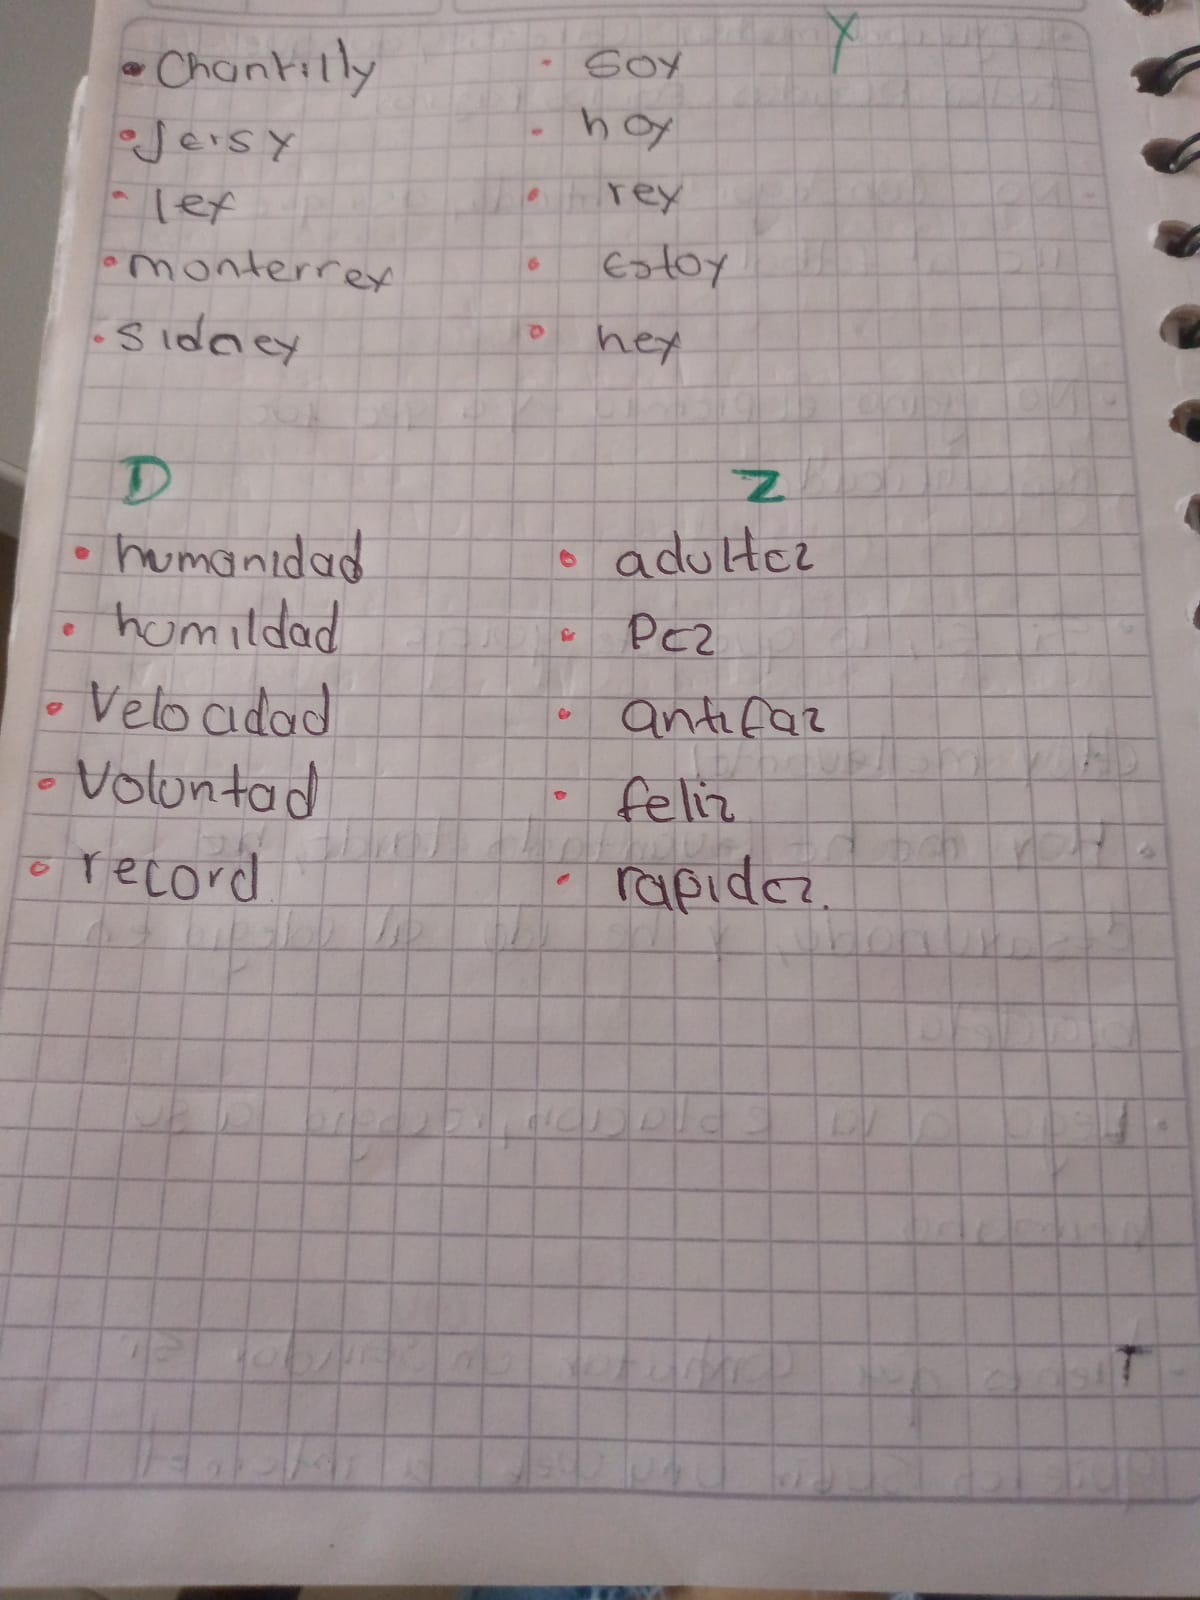 Y
Chantilly
soy
Jersy
hoy
ley
rey
monterrey
estoy
sidney
hey
D
Z
humanidad
adultez
humildad
Pez
Velocidad
antifaz
Voluntad
feliz
record
rapidez.
T